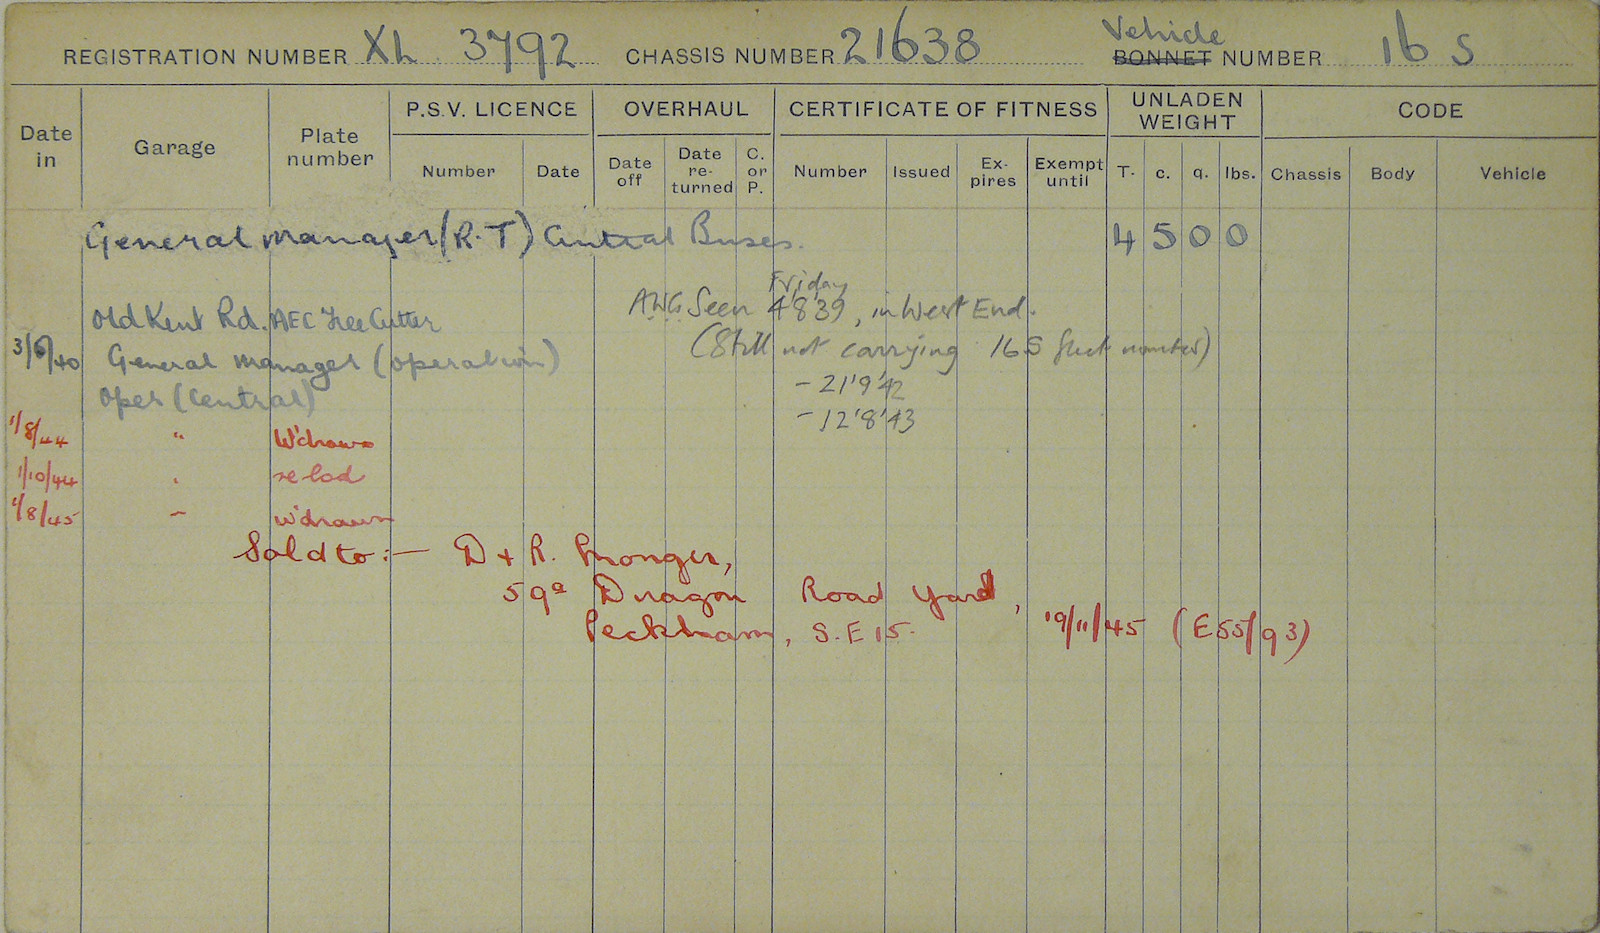 REGISTRATION NUMBER XL 3792 CHASSIS NUMBER 21638 Vehicle BONNET NUMBER 16 S
Date in Garage Plate number P.S.V. LICENCE OVERHAUL CERTIFICATE OF FITNESS UNLADEN WEIGHT CODE
Number Date Date off Date re-turned C. or P. Number Issued Ex-pires Exempt until T. c. q. lbs. Chassis Body Vehicle
General Manager (R.T) Central Buses. 4 5 0 0
Friday
Old Kent Rd. AEC Tree Cutter AWG Seen 4'8'39, in West End.
3/6/40 General Manager (operation) (Still not carrying 16S fleet number)
Oper (Central) - 21'9'42
- 12'8'43
1/8/44 " W'drawn
1/10/44 " relcd
1/8/45 - w'drawn
Sold to:- D + R. Pronger,
59a Dragon Road Yard,
Peckham, S.E 15. 19/11/45 (E55/93)